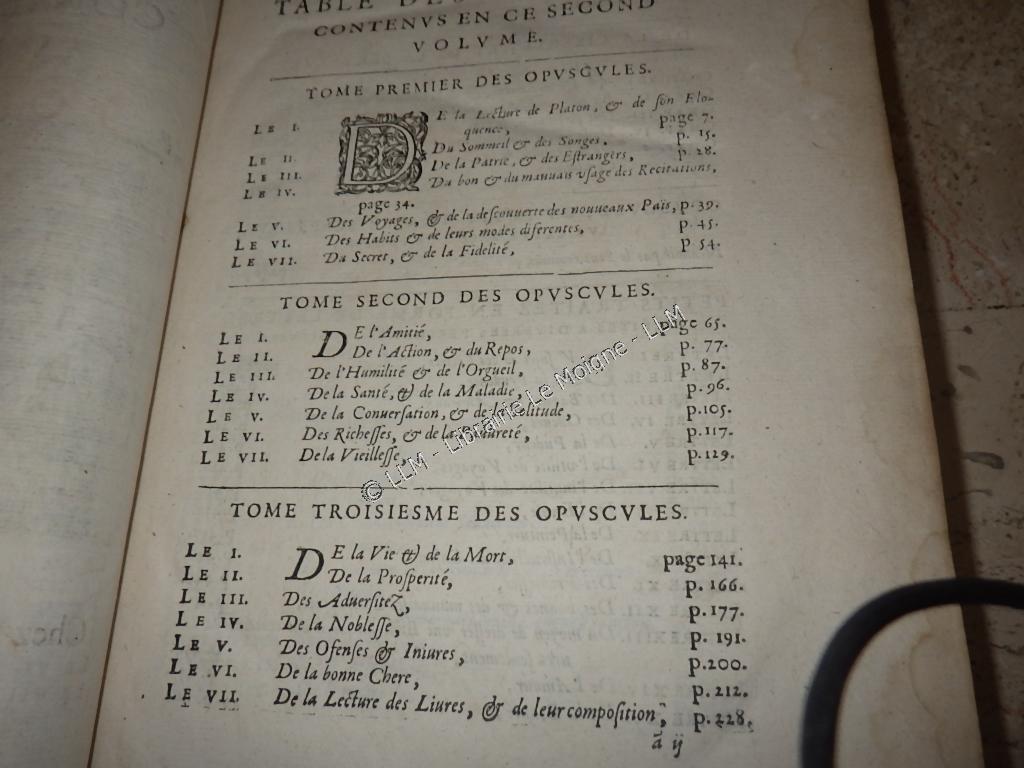 TABLE DES
CONTENVS EN CE SECOND
VOLVME.
TOME PREMIER DES OPVSCVLES.
LE I. DE la Lecture de Platon, & de son Elo-
quence, page 7.
LE II. Du Sommeil & des Songes, p. 15.
LE III. De la Patrie, & des Estrangers, p. 28.
LE IV. Du bon & du mauuais vsage des Recitations,
page 34.
LE V. Des Voyages, & de la descouuerte des nouueaux Païs, p. 39.
LE VI. Des Habits & de leurs modes diferentes, p. 45.
LE VII. Du Secret, & de la Fidelité, p 54.
TOME SECOND DES OPVSCVLES.
LE I. DE l'Amitié, page 65.
LE II. De l'Action, & du Repos, p. 77.
LE III. De l'Humilité & de l'Orgueil, p. 87.
LE IV. De la Santé, & de la Maladie, p. 96.
LE V. De la Conuersation, & de la Solitude, p. 105.
LE VI. Des Richesses, & de la Pauureté, p. 117.
LE VII. De la Vieillesse, p. 129.
TOME TROISIESME DES OPVSCVLES.
LE I. DE la Vie & de la Mort, page 141.
LE II. De la Prosperité, p. 166.
LE III. Des Aduersitez, p. 177.
LE IV. De la Noblesse, p. 191.
LE V. Des Ofenses & Iniures, p. 200.
LE VI. De la bonne Chere, p. 212.
LE VII. De la Lecture des Liures, & de leur composition, p. 228.
ã ij
© LLM - Librairie Le Moigne - LLM
Chez